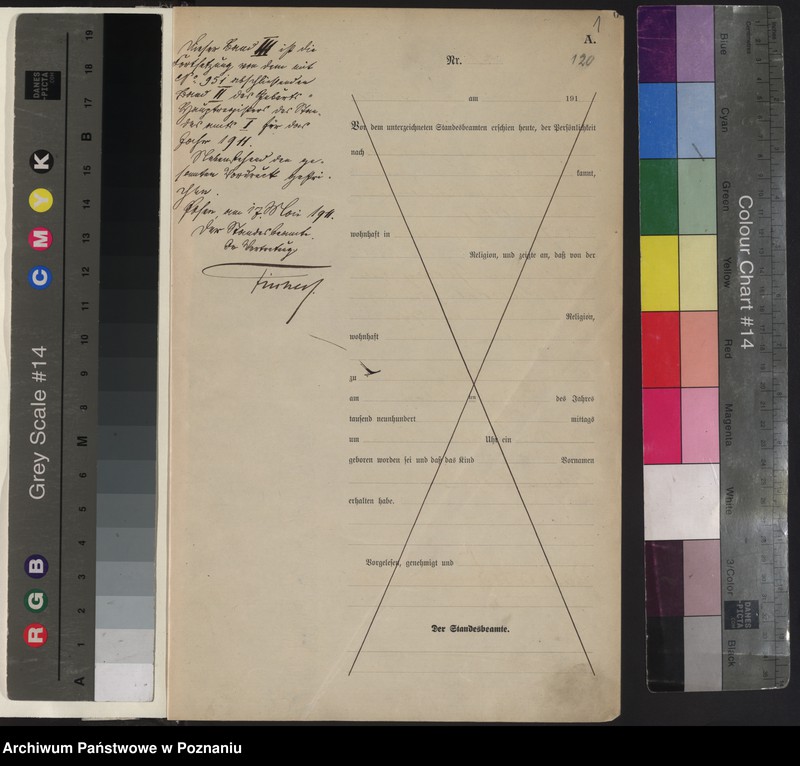 1
A.
120
Nr.
Dieser Band III ist die
Fortsetzung von dem mit
No 951 abschließenden
Band II des Geburts-
Hauptregisters des Stan-
desamts I für das
Jahr 1911.
Nebenstehend der ge-
samten Vordruck gestri-
chen.
Posen, am 17. Mai 1911.
Der Standesbeamte.
In Vertretung
am 191
Vor dem unterzeichneten Standesbeamten erschien heute, der Persönlichkeit
nach
kannt,
wohnhaft in
Religion, und zeigte an, daß von der
Religion,
wohnhaft
zu
am ten des Jahres
tausend neunhundert mittags
um Uhr ein
geboren worden sei und daß das Kind Vornamen
erhalten habe.
Vorgelesen, genehmigt und
Der Standesbeamte.
Grey Scale #14
DANES
PICTA
.COM
R G B
C M Y K
A 1 2 3 4 5 6 M 8 9 10 11 12 13 14 15 B 17 18 19
Colour Chart #14
Blue
Cyan
Green
Yellow
Red
Magenta
White
3/Color
Black
DANES
PICTA
.COM
Archiwum Państwowe w Poznaniu